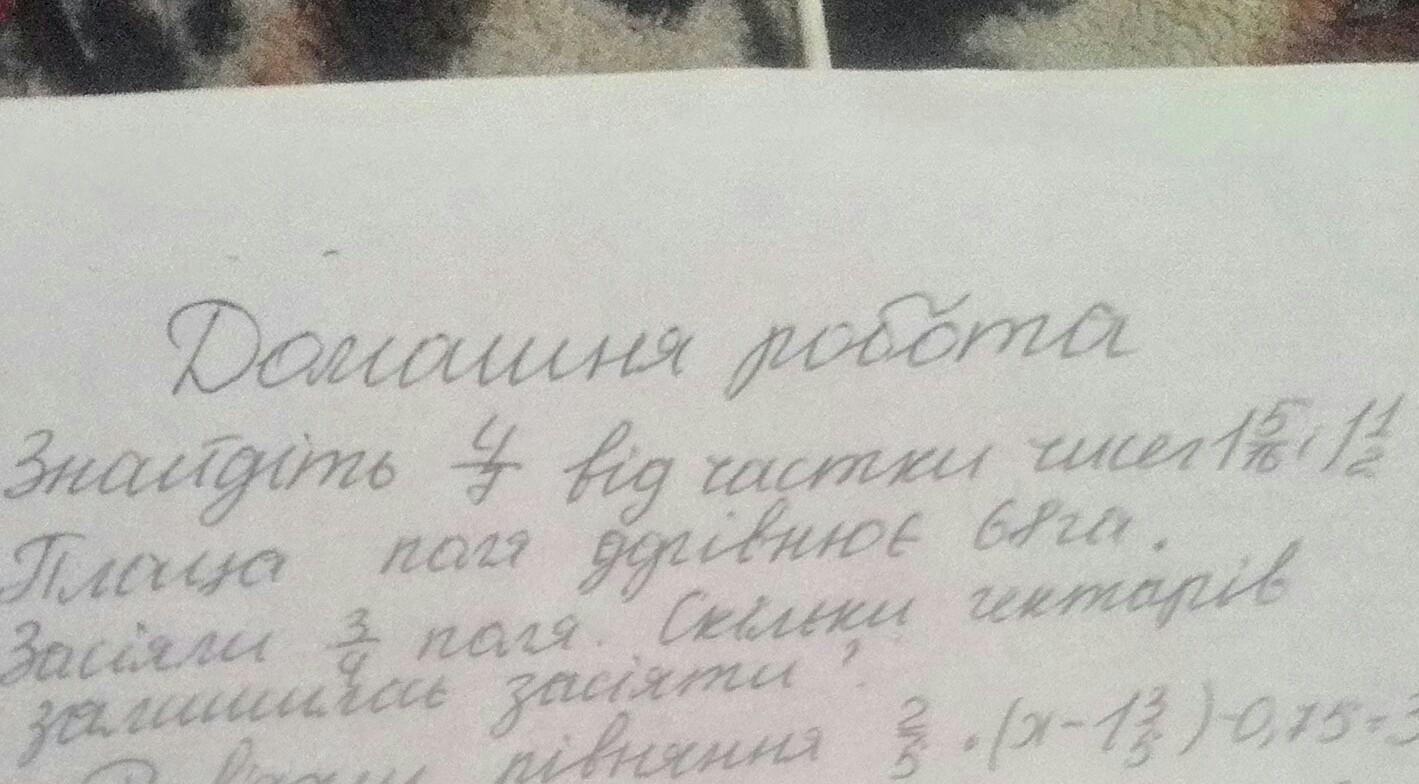 Домашня робота
Знайдіть 4/7 від частки чисел 1 5/16 і 1 1/2
Площа поля дорівнює 68 га.
Засіяли 3/4 поля. Скільки гектарів
залишилась засіяти?
рівняння 2/5 · (х - 1 3/5) - 0,75 = 3